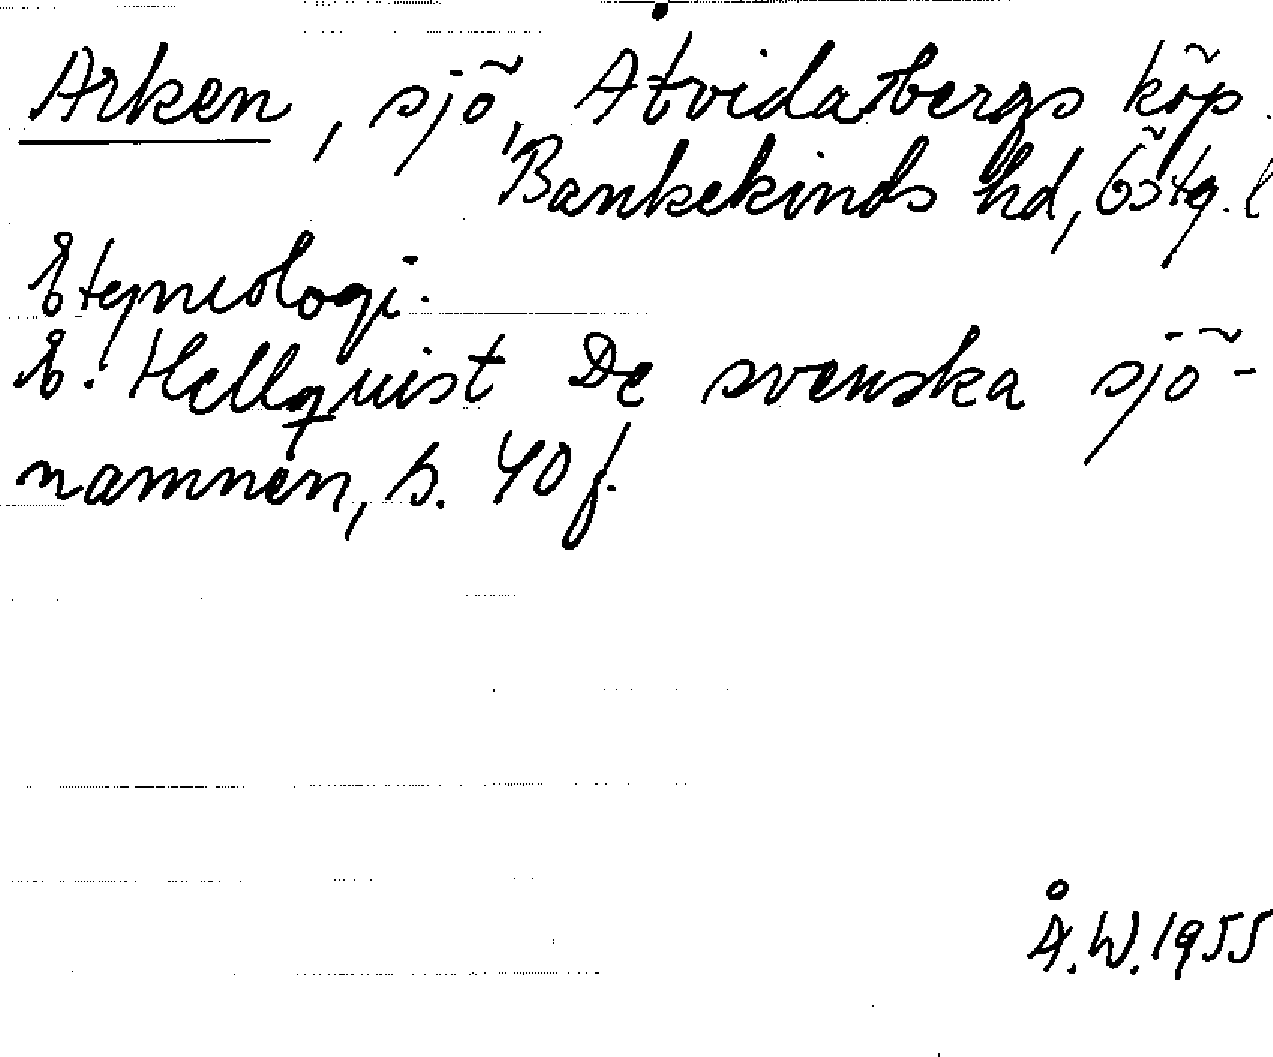 Arken, sjö, Åtvidabergs köp.
Bankekinds hd, Östg. l
Etymologi.
E. Hellquist De svenska sjö-
namnen, s. 40 f.
Å.W. 1955